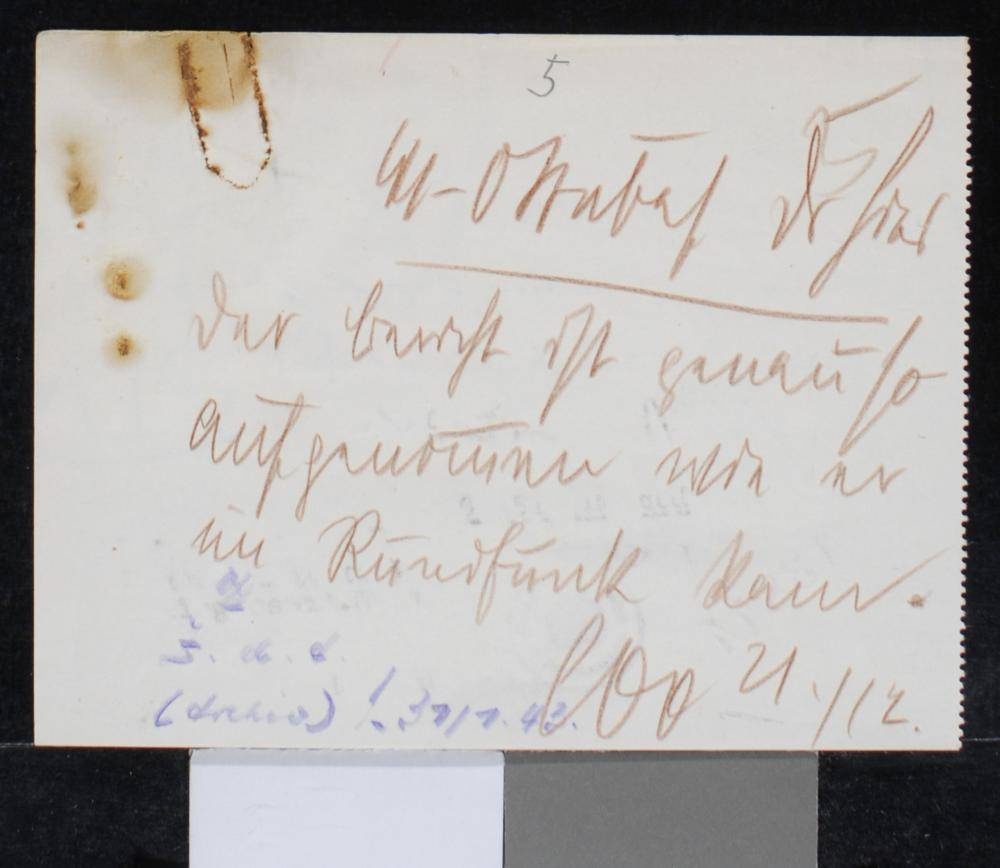 5
SS-Ostubaf Dr
Der bericht ist genau so
aufgenomen wie er
im Rundfunk kam.
21./12.
Z. d. A.
(Archiv) 31/1.43.